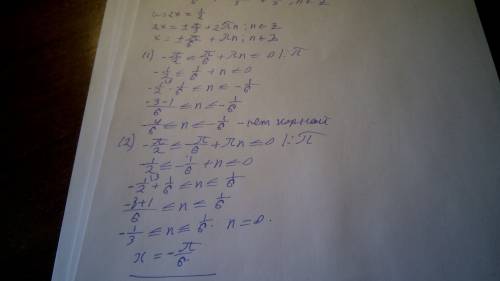 cos2x = 1/2
2x = ± π/3 + 2πn; n∈Z
x = ± π/6 + πn; n∈Z
(1) -π/2 ≤ π/6 + πn ≤ 0 /:π
-1/2 ≤ 1/6 + n ≤ 0
-1/2 - 1/6 ≤ n ≤ -1/6
(-3-1)/6 ≤ n ≤ -1/6
-4/6 ≤ n ≤ -1/6 - нет корней
(2) -π/2 ≤ -π/6 + πn ≤ 0 /:π
-1/2 ≤ -1/6 + n ≤ 0
-1/2 + 1/6 ≤ n ≤ 1/6
(-3+1)/6 ≤ n ≤ 1/6
-1/3 ≤ n ≤ 1/6. n = 0.
x = -π/6.